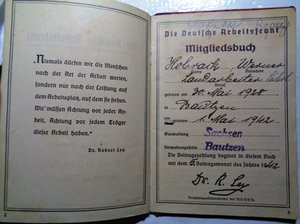 Niemals dürfen wir die Menschen
nach der Art der Arbeit werten,
sondern nur nach der Leistung auf
dem Arbeitsplatz, auf dem sie stehen.
Wir müssen Achtung vor jeder
Arbeit, Achtung vor jedem Träger
dieser Arbeit haben.
Dr. Robert Ley
2
Die Deutsche Arbeitsfront
Mitgliedsbuch
Werner
Vorname
Landarbeiter
Beruf
geb. 20. Mai 1928
Bautzen
1. Mai 1942
Gauwaltung Sachsen
Verwaltungsstelle Bautzen
Die Beitragszahlung beginnt in diesem Buch
mit dem 5. Beitragsmonat des Jahres 1942
Dr. R. Ley
Reichsorganisationsleiter der NSDAP